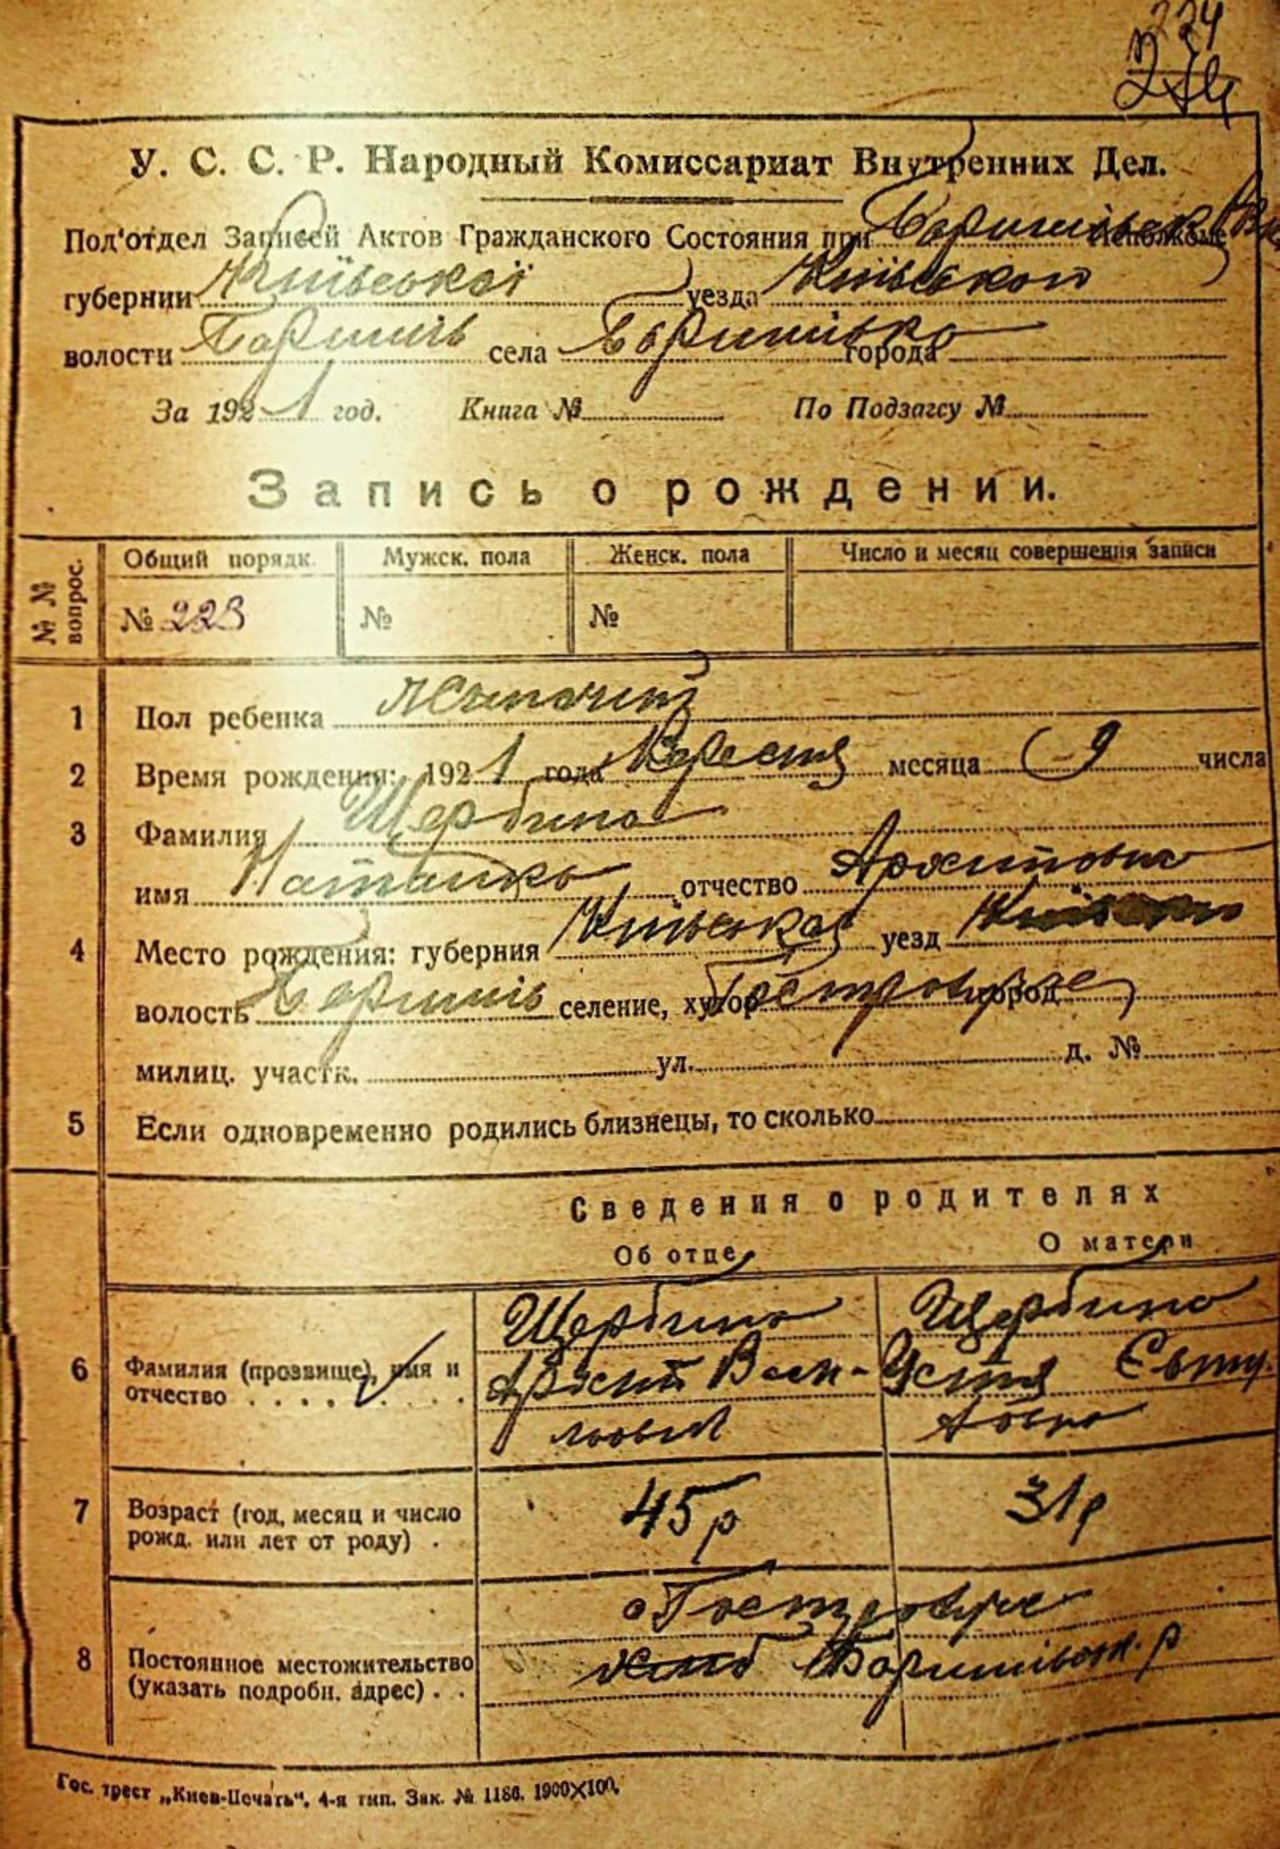 224
У. С. С. Р. Народный Комиссариат Внутренних Дел.
Под'отдел Записей Актов Гражданского Состояния при Исполкоме
губернии Київської уезда Київського
волости Баришів села Баришівка города
За 1921 год. Книга № По Подзагсу №
Запись о рождении.
№ № вопрос. Общий порядк. Мужск. пола Женск. пола Число и месяц совершения записи
№ 223 № №
1 Пол ребенка жіночий
2 Время рождения: 1921 года Вересня месяца 9 числа
3 Фамилия Щербина
имя Наталка отчество Архиповна
4 Место рождения: губерния Київська уезд
волость Баришів селение, хутор город
милиц. участк. ул. д. №
5 Если одновременно родились близнецы, то сколько
Сведения о родителях
Об отце О матери
6 Фамилия (прозвище), имя и отчество . . . . . . . . Щербина Щербина
Архип Васи- Устя Євту-
льович ховна
7 Возраст (год, месяц и число рожд. или лет от роду) . 45 р 31 р
8 Постоянное местожительство (указать подробн. адрес) . .
Баришівськ. р
Гос. трест „Киев-Печать“, 4-я тип. Зак. № 1186. 1900X100.